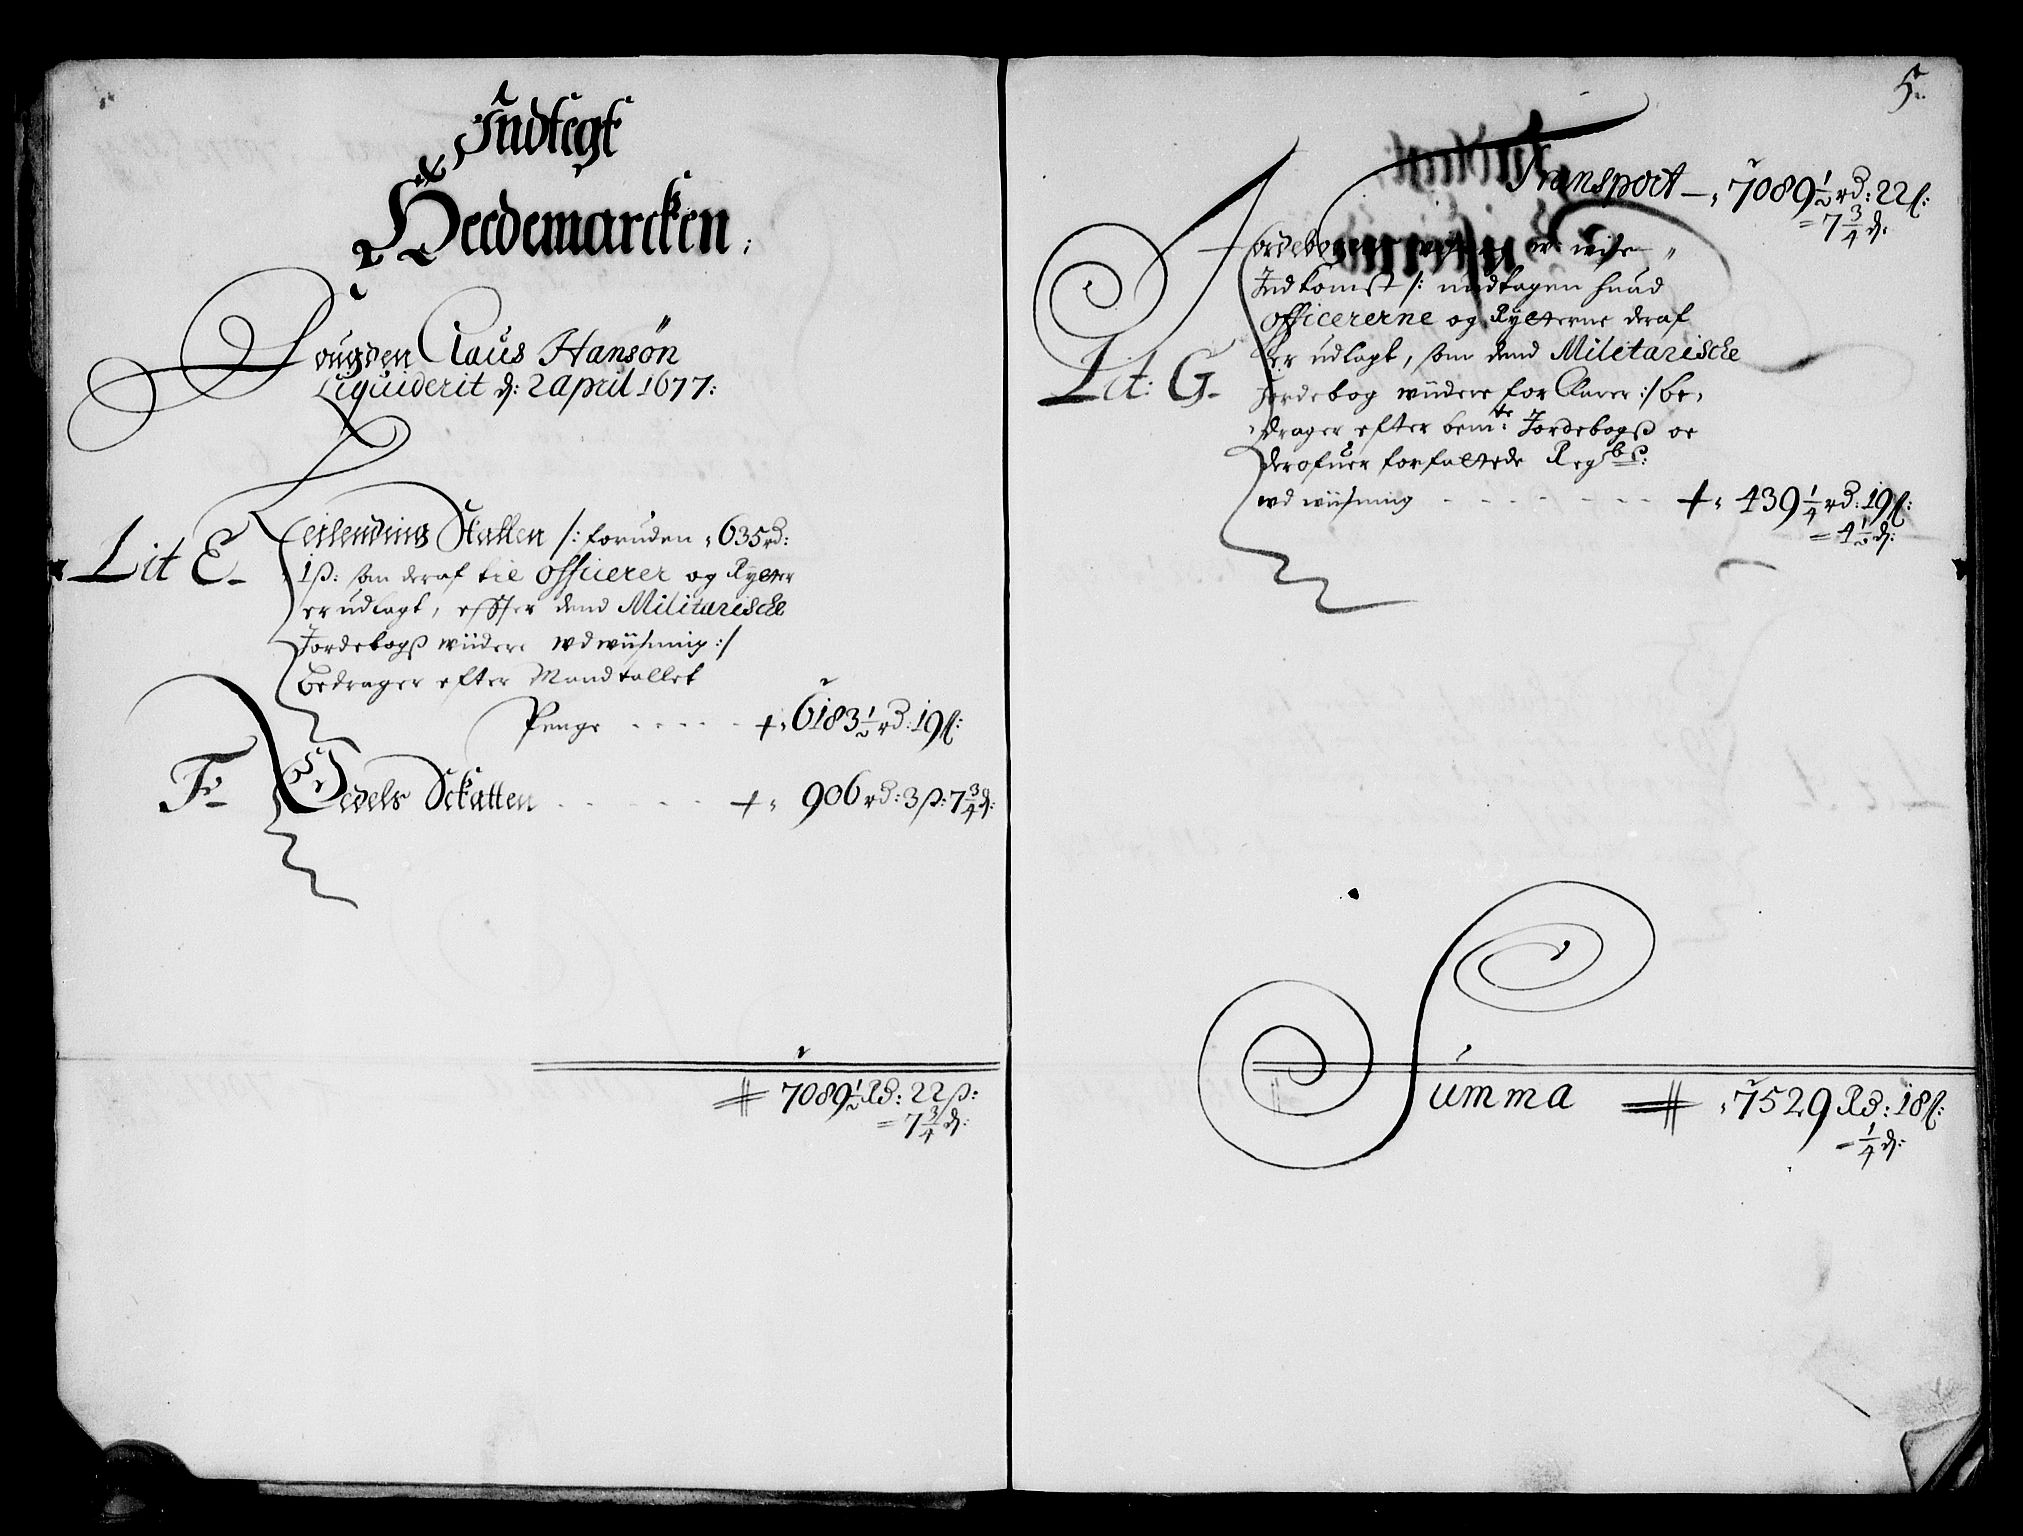 Indtegt
Heedemarcken:
Fougden Claus Hansøn
Liquiderit d: 2 april 1677:
Lit E Leilendings Skatten /: foruden 635 rd:
1 ß: som deraf til officerer og Rytter
er udlagt, efter dend Militarische
Jordebogs wiidere udwiisning :/
bedrager efter Mandtallet
Penge - - - - + 6183 1/2 rd: 19 ß:
F Odels Sckatten - - - - + 906 rd: 3 ß: 7 3/4 d:
7089 1/2 Rd: 22 ß:
= 7 3/4 d:
5
Transport - 7089 1/2 rd: 22 ß:
= 7 3/4 d:
Jordebogens wisse
Indkomst /: undtagen huad
officererne og Rytterne deraf
Lit: G er udlagt, som dend Militarische
Jordebog wiidere forklarer :/ be,
drager efter bemte: Jordebogs oc
derofuer forfattede
udwiisning - - - - + 439 1/4 rd: 19 ß:
= 4 1/2 d:
Summa 7529 Rd: 18 ß:
- 1/4 d: